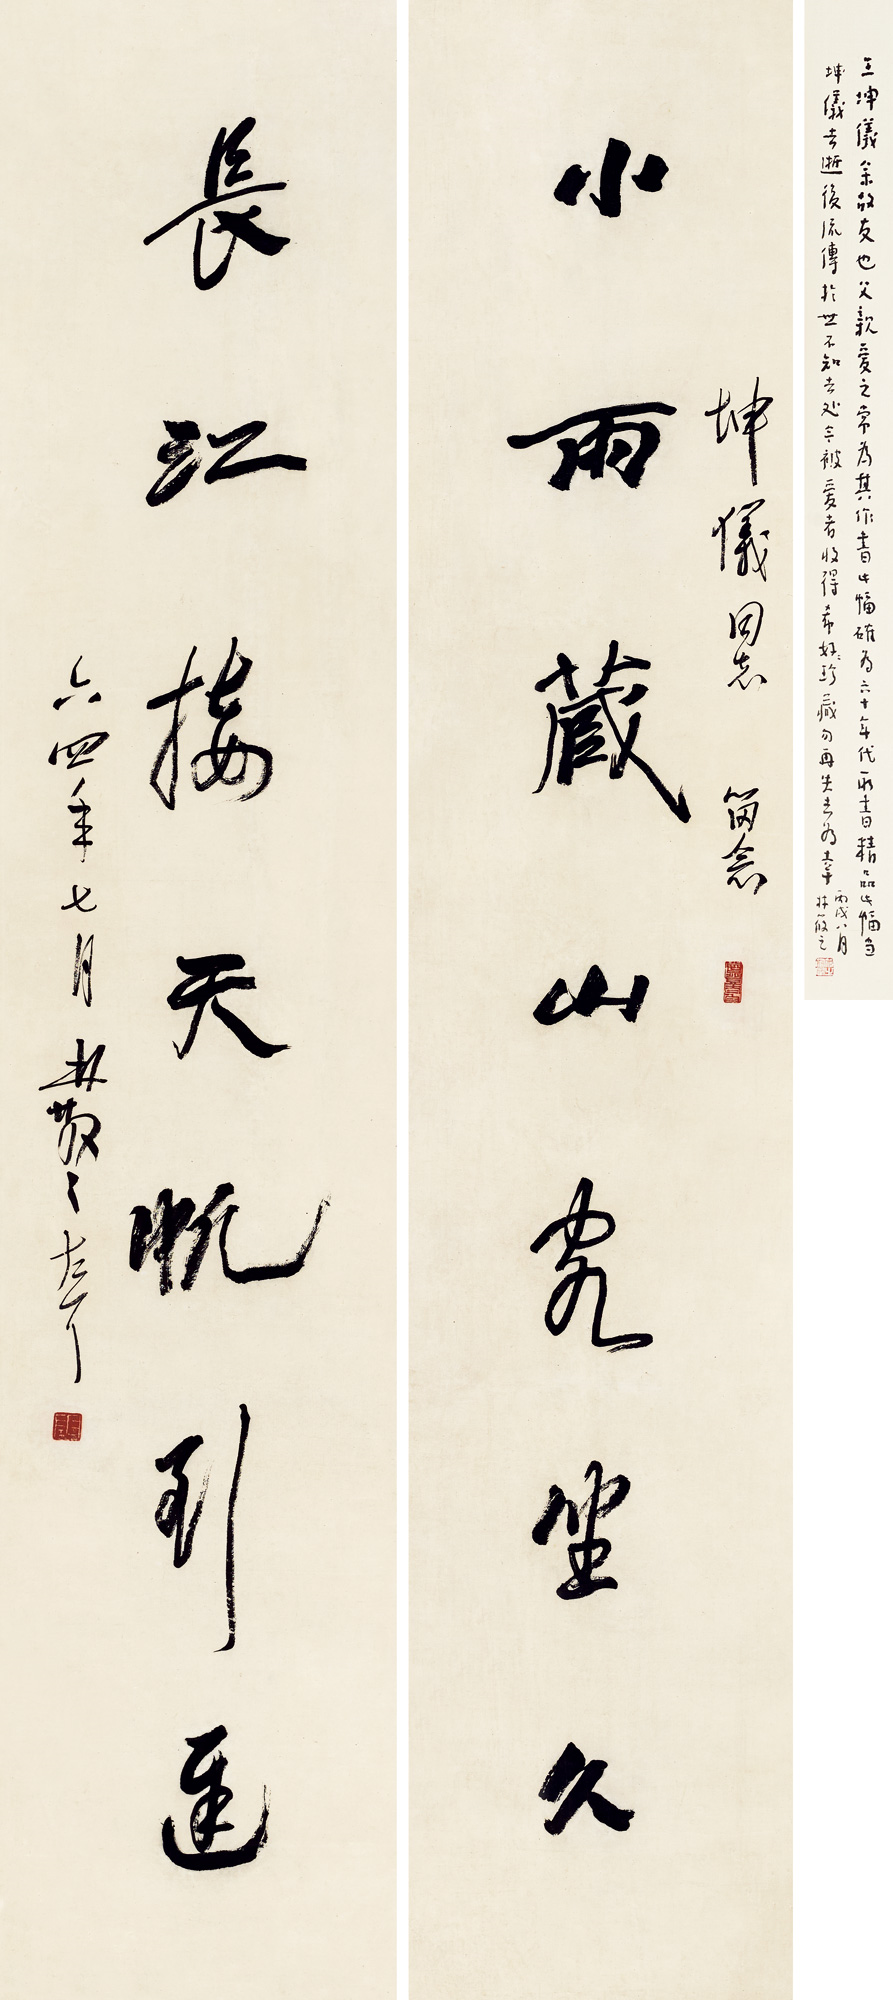 王坤儀余故友也父親愛之常為其作書此幅確為六十年代所書精品此幅自
坤儀去逝後流傳於世不知去処今被愛者收得希好珍藏勿再失去為幸
丙戌八月
林筱之
坤儀同志 留念
小雨藏山客坐久
長江接天帆到遲
六四年七月林散之左耳